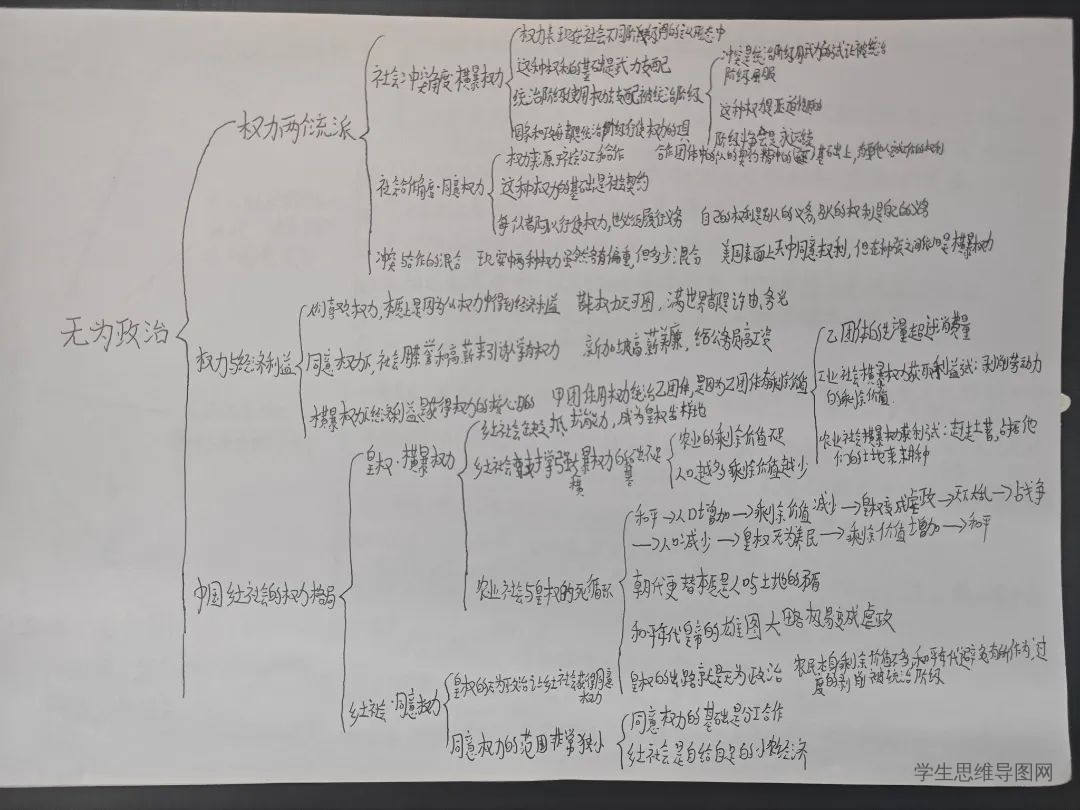 无为政治
权力两个流派
社会冲突角度·横暴权力
权力表现在社会不同阶层的主从形态中
这种权利的基础是武力支配
统治阶级使用权力支配被统治阶级
冲突是统治阶级用武力的方式让被统治
阶级屈服
这种权力是压迫性的
阶级斗争会是永远续
国家和政府都是统治阶级行使权力的工具
社会合作角度·同意权力
权力来源于社会分工和合作
这种权力的基础是社会契约
每个人都可以行使权力,也必须履行义务 自己的权利是别人的义务,别人的权利是自己的义务
冲突与合作的混合 现实中两种权力虽然各有偏重,但多少混合 美国表面上关中同意权利,但在种族之间依旧是横暴权力
权力与经济利益
人们喜欢权力,本质上是因为从权力中得到经济利益 若非权力无可图,满世界都是许由、务光
同意权力下,社会用荣誉和高薪来引诱人掌握权力 新加坡高薪养廉,给公务员高工资
横暴权力下经济利益是获得权力的核心目的 甲团体用权力统治乙团体,是因为乙团体有剩余价值
乙团体的生产量超过消费量
工业社会横暴权力获取利益方式:剥削劳动力
的剩余价值
农业社会横暴权力获利方式:赶走土著,占据他
们的土地来耕种
中国乡土社会的权力格局
皇权·横暴权力
乡土社会在缺乏抵抗能力,成为皇权发祥地
乡土社会支撑强大横暴权力的基础不足
农业的剩余价值不足
人口越多剩余价值越少
农业社会与皇权的死循环
和平→人口增加→剩余价值减少→皇权变成虐政→天下大乱→占战争
→人口减少→皇权无为养民→剩余价值增加→和平
朝代更替本质是人口与土地的矛盾
和平年代皇帝的雄图大略极易变成虐政
皇权的出路就是无为政治
农民本身剩余价值不多,和平年代避免有所作为,过
度的剥削被统治阶级
乡土社会·同意权力
皇权的无为政治让乡土社会获得同意
权力
同意权力的范围非常狭小
同意权力的基础是分工合作
乡土社会是自给自足的小农经济
学生思维导图网